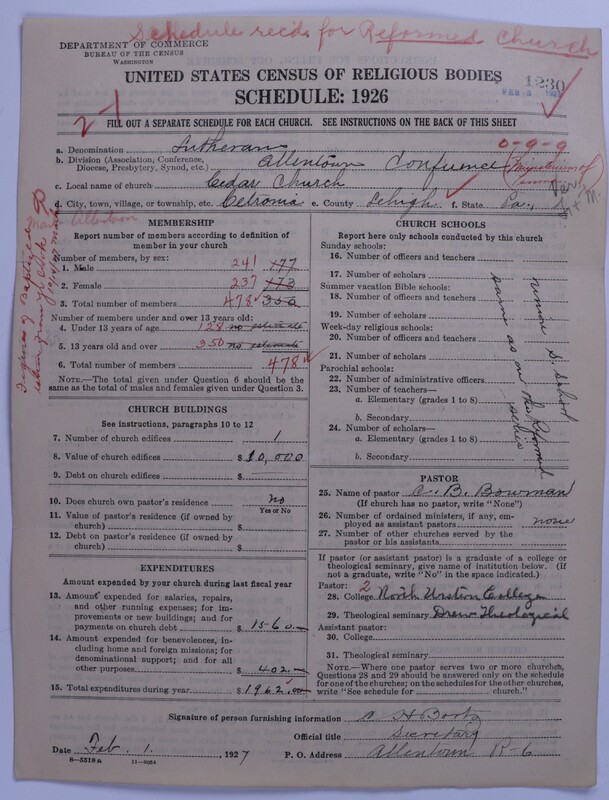 Schedule recd for Reformed Church
DEPARTMENT OF COMMERCE
BUREAU OF THE CENSUS
WASHINGTON
UNITED STATES CENSUS OF RELIGIOUS BODIES
1230
SCHEDULE: 1926
FILL OUT A SEPARATE SCHEDULE FOR EACH CHURCH. SEE INSTRUCTIONS ON THE BACK OF THIS SHEET
a. Denomination Lutheran 0-9-9
b. Division (Association, Conference, Diocese, Presbytery, Synod, etc.) Allentown Conference
c. Local name of church Cedar Church
d. City, town, village, or township, etc. Cetronia e. County Lehigh f. State Pa.,
MEMBERSHIP
Report number of members according to definition of member in your church
Number of members, by sex:
1. Male 241 177
2. Female 237 173
3. Total number of members 478 350
Number of members under and over 13 years old:
4. Under 13 years of age 128 no estimate
5. 13 years old and over 350 no estimate
6. Total number of members 478
NOTE.—The total given under Question 6 should be the same as the total of males and females given under Question 3.
CHURCH BUILDINGS
See instructions, paragraphs 10 to 12
7. Number of church edifices 1
8. Value of church edifices $ 10,000
9. Debt on church edifices $
10. Does church own pastor's residence? no
Yes or No
11. Value of pastor's residence (if owned by church) $
12. Debt on pastor's residence (if owned by church) $
EXPENDITURES
Amount expended by your church during last fiscal year
13. Amount expended for salaries, repairs, and other running expenses; for improvements or new buildings; and for payments on church debt $ 1560.—
14. Amount expended for benevolences, including home and foreign missions; for denominational support; and for all other purposes $ 402.—
15. Total expenditures during year $ 1962.00
CHURCH SCHOOLS
Report here only schools conducted by this church
Sunday schools:
16. Number of officers and teachers
17. Number of scholars
Summer vacation Bible schools:
18. Number of officers and teachers
19. Number of scholars
Week-day religious schools:
20. Number of officers and teachers
21. Number of scholars
Parochial schools:
22. Number of administrative officers
23. Number of teachers—
a. Elementary (grades 1 to 8)
b. Secondary
24. Number of scholars—
a. Elementary (grades 1 to 8)
b. Secondary
same as on the Reformed
PASTOR
25. Name of pastor C. B. Bowman
(If church has no pastor, write "None")
26. Number of ordained ministers, if any, employed as assistant pastors none
27. Number of other churches served by the pastor or his assistants
If pastor (or assistant pastor) is a graduate of a college or theological seminary, give name of institution below. (If not a graduate, write "No" in the space indicated.)
Pastor: 2
28. College North Western College
29. Theological seminary Drew Theological
Assistant pastor:
30. College
31. Theological seminary
NOTE.—Where one pastor serves two or more churches, Questions 28 and 29 should be answered only on the schedule for one of the churches; on the schedules for the other churches, write "See schedule for church."
Signature of person furnishing information
Official title Secretary
Date Feb. 1, 1927 P. O. Address Allentown R-6
8—5518a 11—9064